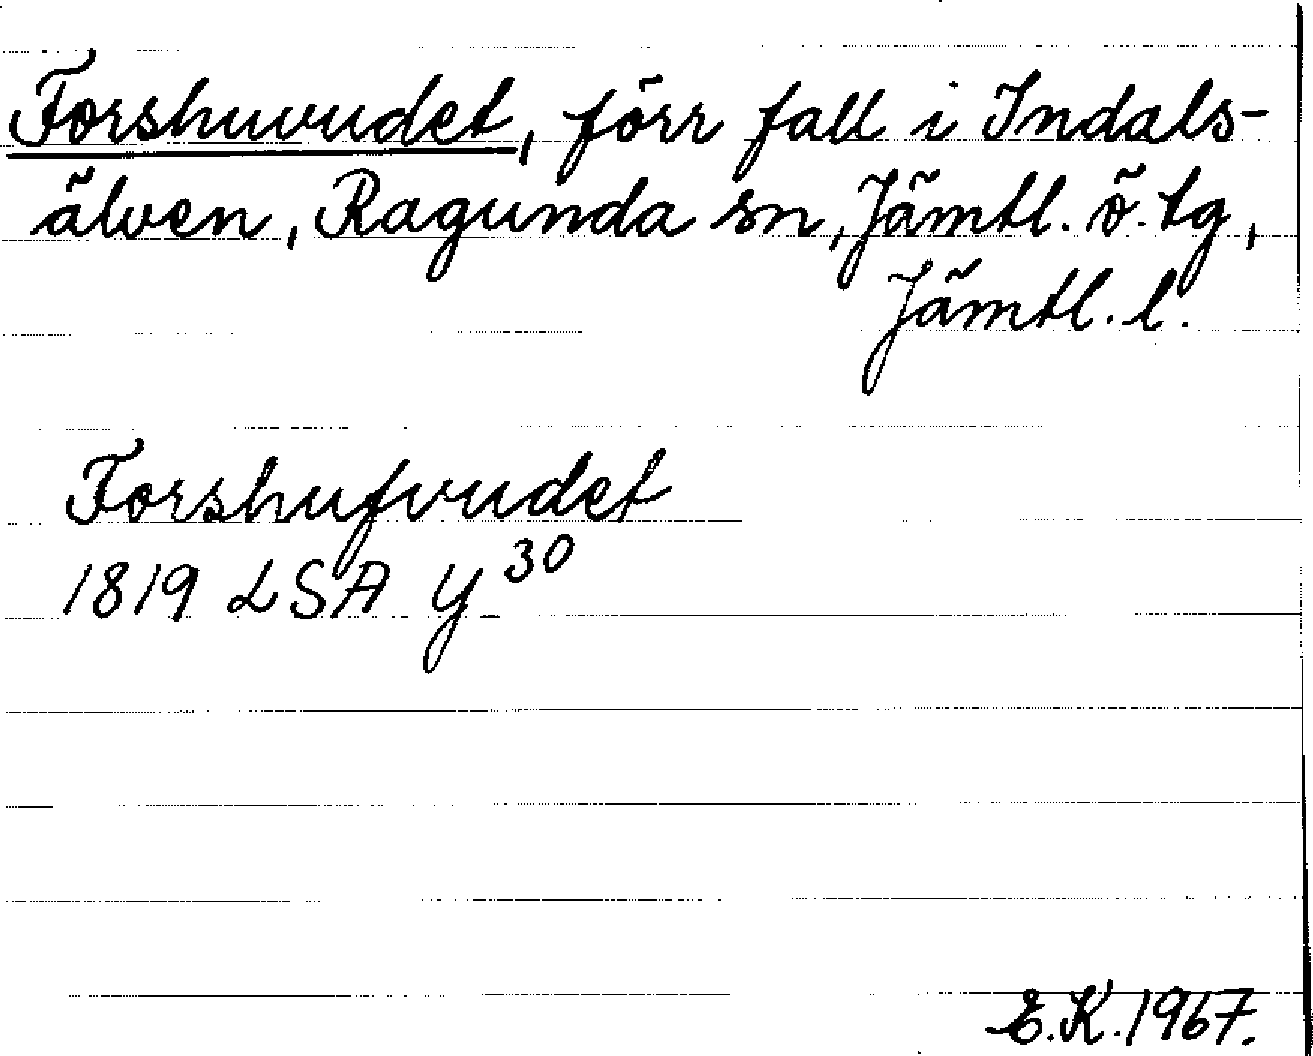 Forshuvudet, förr fall i Indals-
älven, Ragunda sn, Jämtl. ö. tg,
Jämtl. l.
Forshufvudet
1819 LSA Y 30
E.K. 1967.